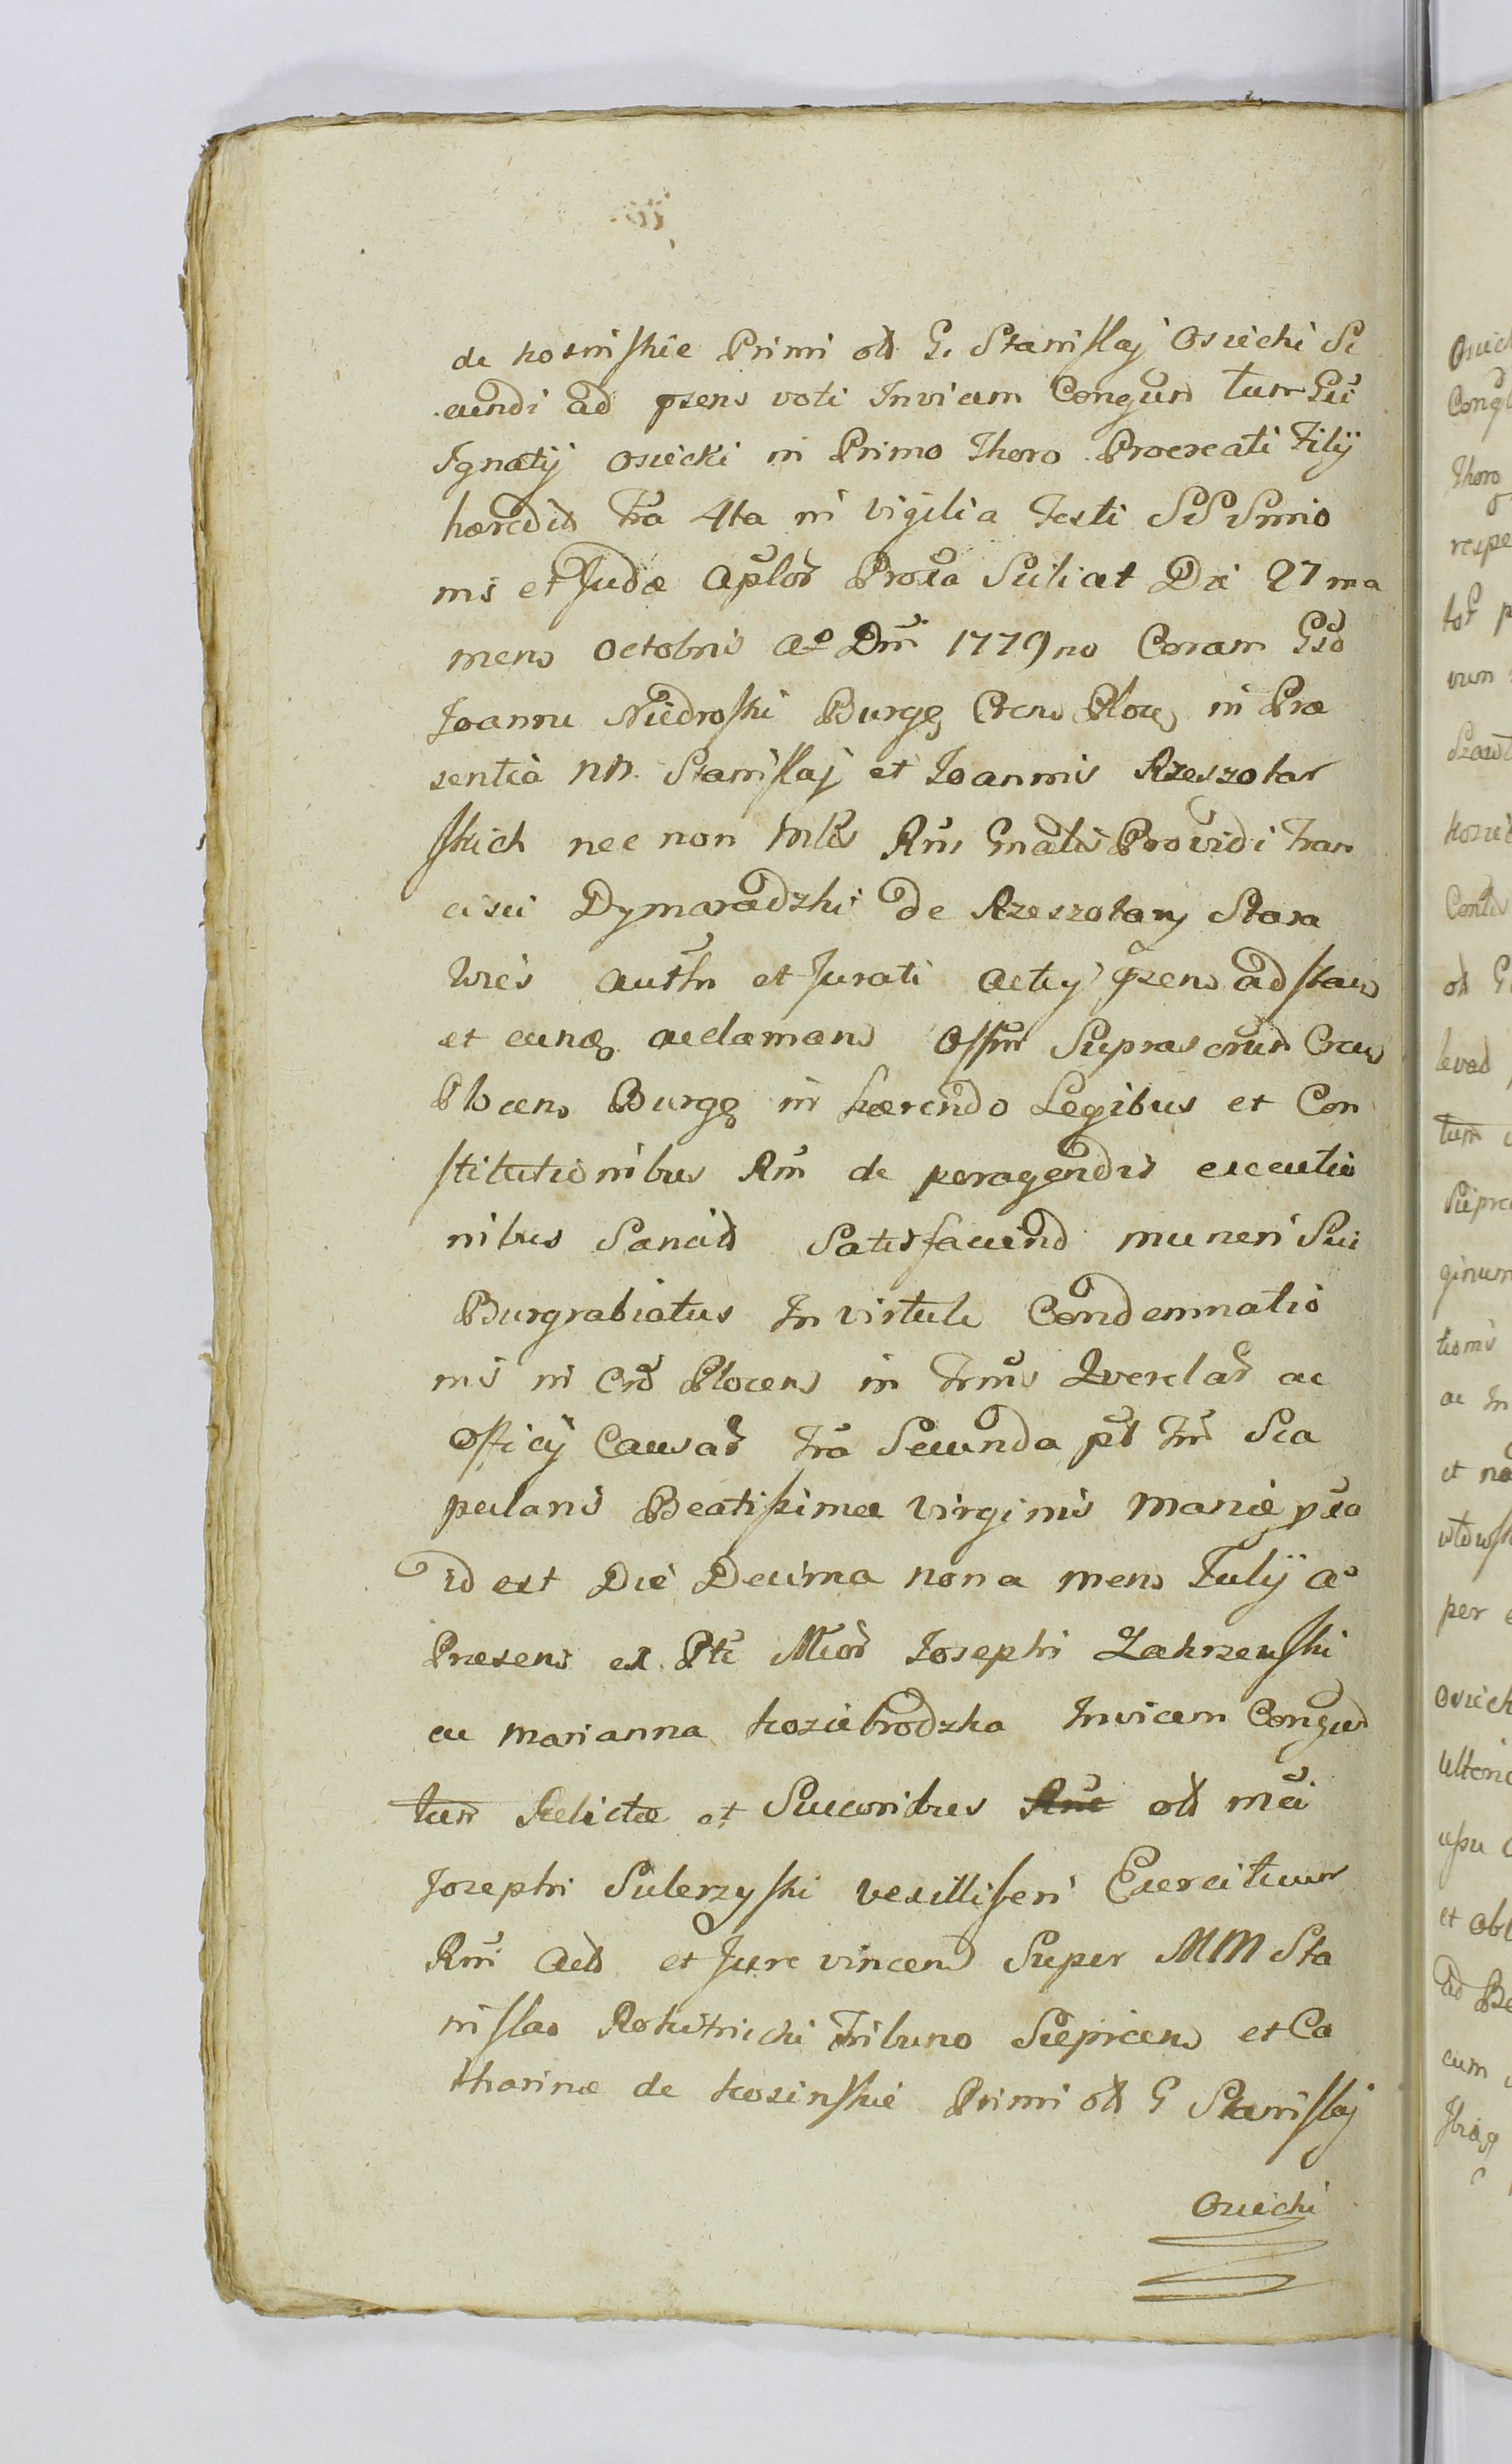 de Kosinskie Primi olt G. Stanislaj Osiecki Se
cundi ad prens voti Invicem Congun tum Gui
Ignatij Osiecki in Primo Thoro Procreati Filij
hæredit Fra 4ta in Vigilia Festi SS Simo
nis et Judæ Aplor Proxa Sciliat Die 27ma
mens Octobris Ao Dni 1779no Coram Gso
Joanne Niedroski Burg Crens Ploc in Præ
sentia nn. Stanislaj et Joannis Rzeszotar
skich nec non Mlis Rni Gnalis Providi Fran
cisci Dymaradzki de Rzeszotary Stara
Wies Authn et Jurati Actuj prens adstans
et eunq acclamans Offm Suprascrim Crens
Plocens Burg in hærendo Legibus et Con
stitutionibus Rni de peragendis executio
nibus Sancit Satisfaciend muneri Sui
Burgrabiatus In virtute Condemnatio
nis in Cro Plocens in Trmis Querelar ac
Officij Causar Fra Secunda pt Fm Sca
pularis Beatissimæ Virginis Mariæ pxa
id est Die Decima nona mens Julij Ao
Præsens ex Pte Mcor Josephi Zakrzewski
ac Marianna Koziebrodzka Invicem Congun
tum Relictæ et Succoribus olt mci
Josephi Sulerzyski vexilliferi Exercituum
Rni Act et Jure vincens Super MM Sta
nislao Rokitnicki Tribuno Sieprcens et Ca
tharinæ de Kosinskie Primi olt G Stanislaj
Osiecki